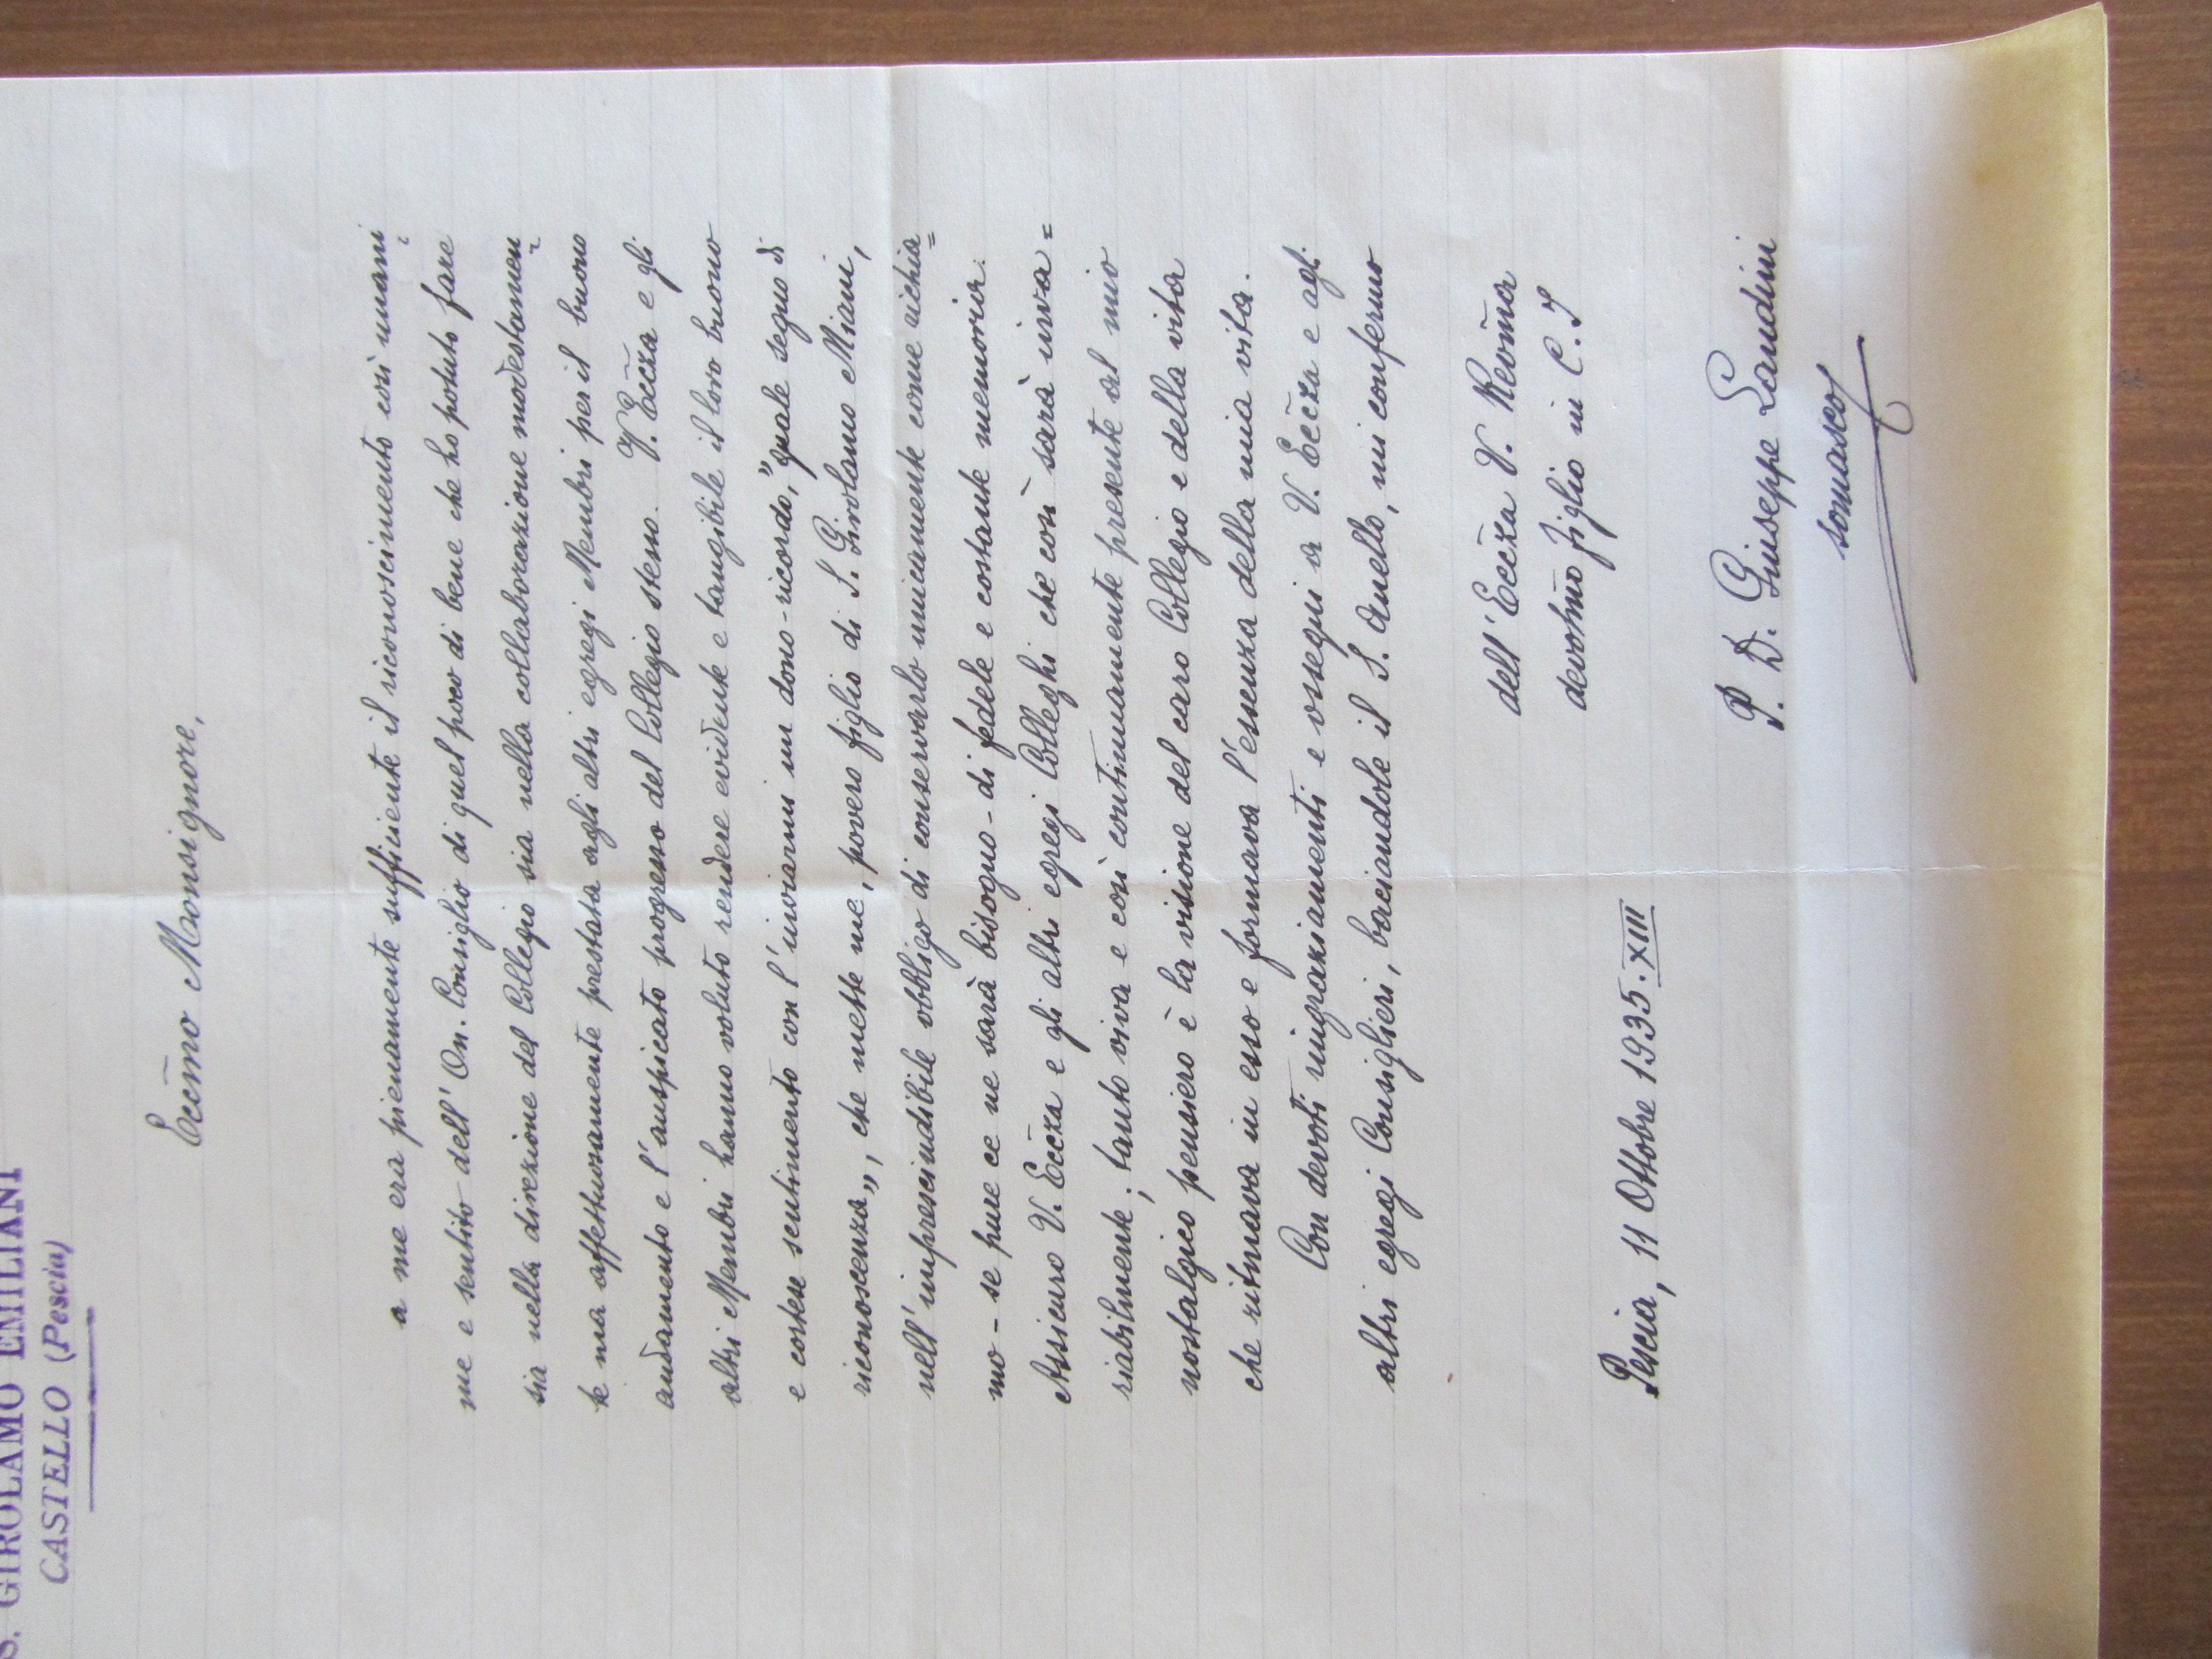 S. GIROLAMO EMILIANI
CASTELLO (Pescia)
Eccm̃o Monsignore,
a me era pienamente sufficiente il riconoscimento così unani=
me e sentito dell'On. Consiglio di quel poco di bene che ho potuto fare
sia nella direzione del Collegio sia nella collaborazione modestamen=
te ma affettuosamente prestata agli altri egregi Membri per il buono
andamento e l'auspicato progresso del Collegio stesso. V. Ecc̃za e gli
altri Membri hanno voluto rendere evidente e tangibile il loro buono
e cortese sentimento con l'inviarmi un dono-ricordo, "quale segno di
riconoscenza", che mette me, povero figlio di S. Girolamo Miani,
nell'imprescindibile obbligo di conservarlo unicamente come richia=
mo - se pure ce ne sarà bisogno - di fedele e costante memoria.
Assicuro V. Ecc̃za e gli altri egregi Colleghi che così sarà inva=
riabilmente; tanto viva e così continuamente presente al mio
nostalgico pensiero è la visione del caro Collegio e della vita
che ritmava in esso e formava l'essenza della mia vita.
Con devoti ringraziamenti e ossequi a V. Ecc̃za e agli
altri egregi Consiglieri, baciandole il S. Anello, mi confermo
dell'Ecc̃za V. Revm̃a
devotm̃o figlio in C. J
Pescia, 11 Ottobre 1935. XIII
P. D. Giuseppe Landini
somasco